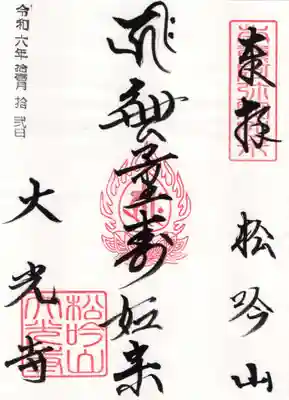 奉拝
松吟山
無量寿如来
大光寺
令和六年拾壹月拾弐日
松吟山
大光寺